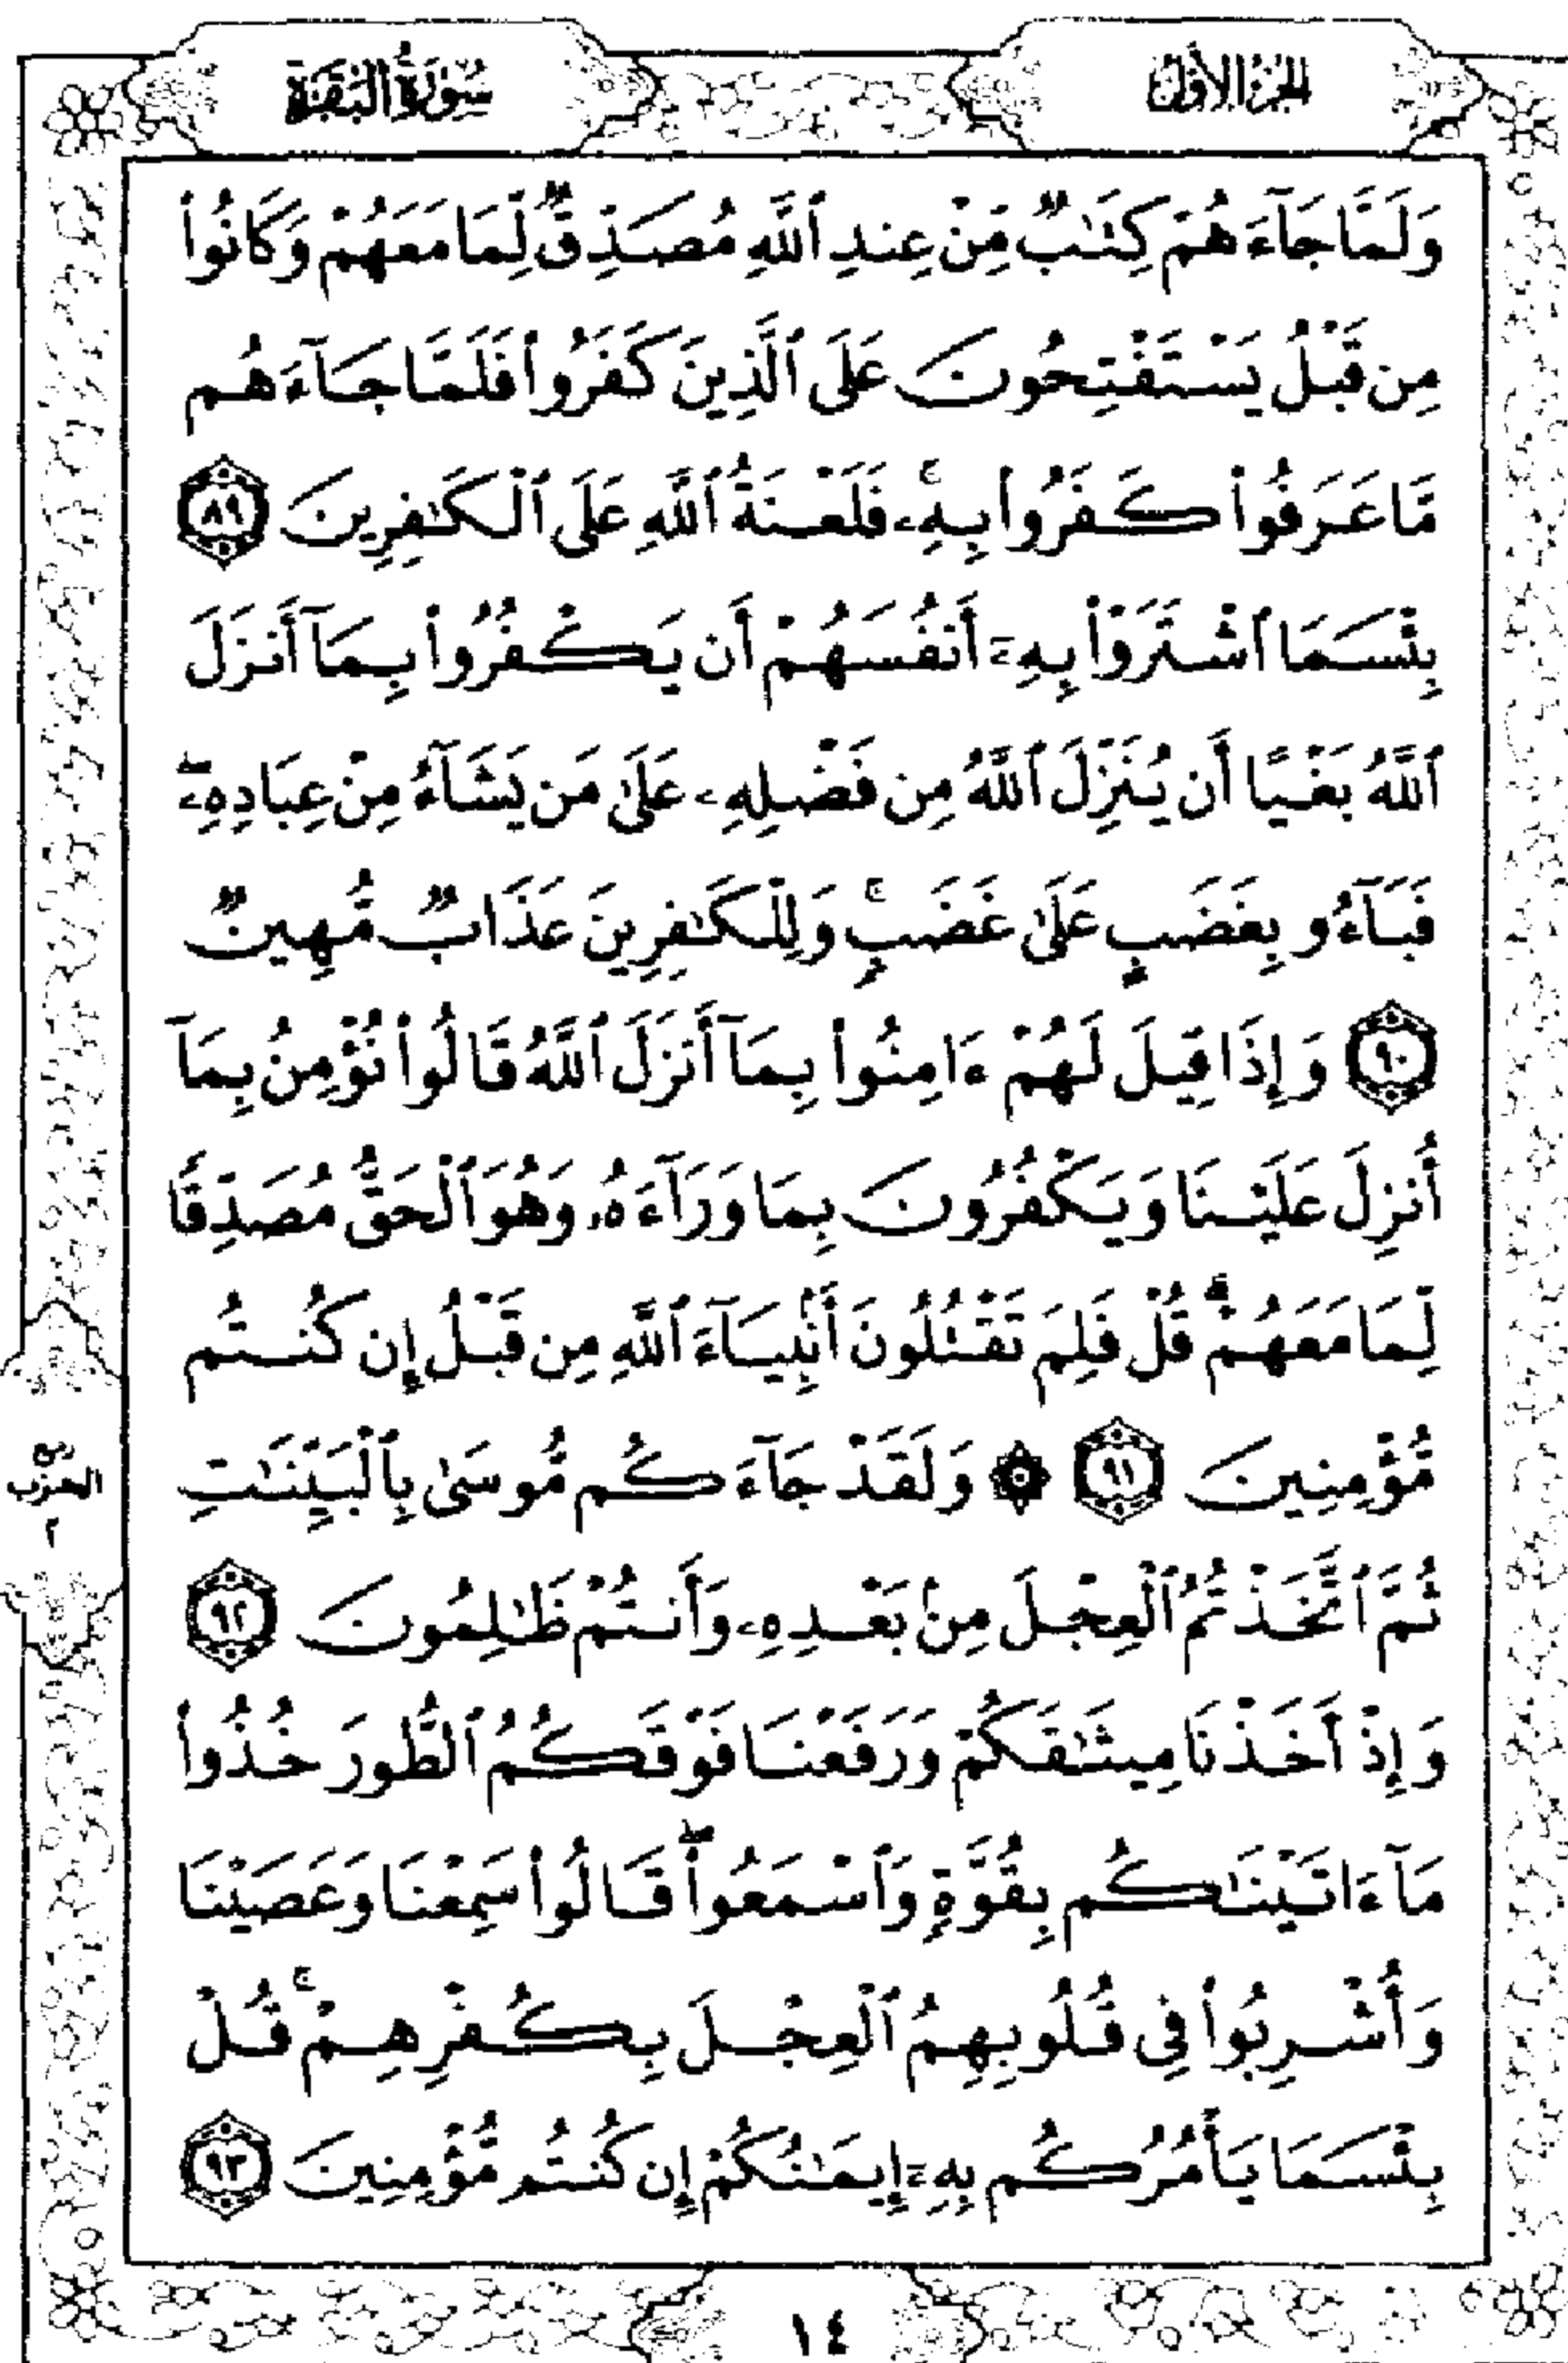 الجزء الأول
سورة البقرة
وَلَمَّا جَآءَهُمْ كِتَٰبٌ مِّنْ عِندِ ٱللَّهِ مُصَدِّقٌ لِّمَا مَعَهُمْ وَكَانُوا۟
مِن قَبْلُ يَسْتَفْتِحُونَ عَلَى ٱلَّذِينَ كَفَرُوا۟ فَلَمَّا جَآءَهُم
مَّا عَرَفُوا۟ كَفَرُوا۟ بِهِۦۚ فَلَعْنَةُ ٱللَّهِ عَلَى ٱلْكَٰفِرِينَ ٨٩
بِئْسَمَا ٱشْتَرَوْا۟ بِهِۦٓ أَنفُسَهُمْ أَن يَكْفُرُوا۟ بِمَآ أَنزَلَ
ٱللَّهُ بَغْيًا أَن يُنَزِّلَ ٱللَّهُ مِن فَضْلِهِۦ عَلَىٰ مَن يَشَآءُ مِنْ عِبَادِهِۦۖ
فَبَآءُو بِغَضَبٍ عَلَىٰ غَضَبٍۚ وَلِلْكَٰفِرِينَ عَذَابٌ مُّهِينٌ
٩٠ وَإِذَا قِيلَ لَهُمْ ءَامِنُوا۟ بِمَآ أَنزَلَ ٱللَّهُ قَالُوا۟ نُؤْمِنُ بِمَآ
أُنزِلَ عَلَيْنَا وَيَكْفُرُونَ بِمَا وَرَآءَهُۥ وَهُوَ ٱلْحَقُّ مُصَدِّقًا
لِّمَا مَعَهُمْۗ قُلْ فَلِمَ تَقْتُلُونَ أَنۢبِيَآءَ ٱللَّهِ مِن قَبْلُ إِن كُنتُم
مُّؤْمِنِينَ ٩١ ۞ وَلَقَدْ جَآءَكُم مُّوسَىٰ بِٱلْبَيِّنَٰتِ
ثُمَّ ٱتَّخَذْتُمُ ٱلْعِجْلَ مِنۢ بَعْدِهِۦ وَأَنتُمْ ظَٰلِمُونَ ٩٢
وَإِذْ أَخَذْنَا مِيثَٰقَكُمْ وَرَفَعْنَا فَوْقَكُمُ ٱلطُّورَ خُذُوا۟
مَآ ءَاتَيْنَٰكُم بِقُوَّةٍ وَٱسْمَعُوا۟ۖ قَالُوا۟ سَمِعْنَا وَعَصَيْنَا
وَأُشْرِبُوا۟ فِى قُلُوبِهِمُ ٱلْعِجْلَ بِكُفْرِهِمْۚ قُلْ
بِئْسَمَا يَأْمُرُكُم بِهِۦٓ إِيمَٰنُكُمْ إِن كُنتُم مُّؤْمِنِينَ ٩٣
الحزب
٢
١٤